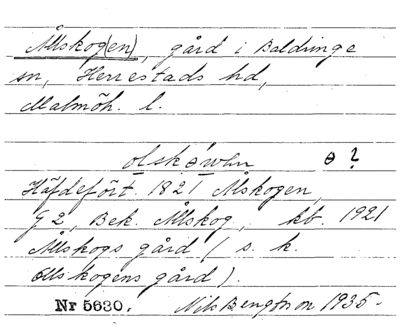 Ållskog(en), gård i Baldringe
sn, Herrestads hd,
Malmöh. l.
ɵ ?
Häfdefört 1821 Ålskogen,
G 2, Bek. Ållskog, kb. 1921
Ållskogs gård (s. k.
Ollskogens gård).
Nr 5630. Nils Bengtsson 1935.